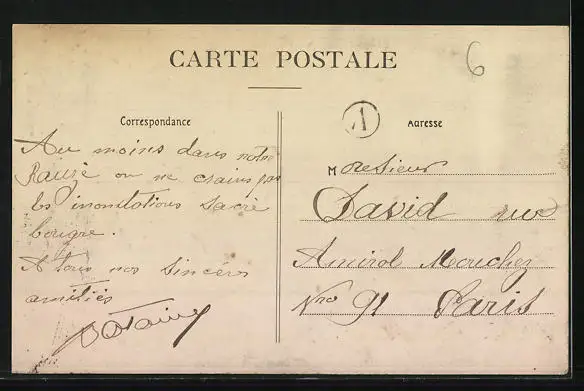 CARTE POSTALE
6
Correspondance
A
Adresse
Au moins dans notre
on ne crains pas
les inondations sacré
bougre.
A tous nos sincères
amitiés
Monsieur
David rue
Amiral Mouchez
Nro 91 Paris